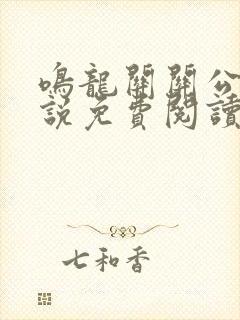 鳴龍關關公
說免費閱讀
七和香